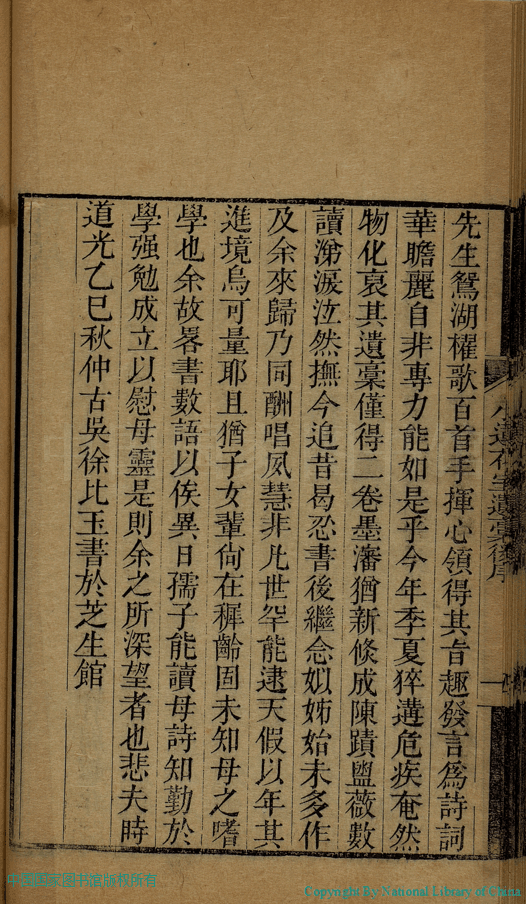 先生鴛湖櫂歌百首手揮心領得其旨趣發言爲詩詞
華贍麗自非專力能如是乎今年季夏猝遘危疾奄然
物化裒其遺稾僅得二卷墨瀋猶新倐成陳蹟盥薇數
讀涕淚泣然撫今追昔曷忍書後繼念姒姊始未多作
及余來歸乃同酬唱夙慧非凡世罕能逮天假以年其
進境烏可量耶且猶子女輩尙在穉齡固未知母之嗜
學也余故畧書數語以俟異日孺子能讀母詩知勤於
學强勉成立以慰母靈是則余之所深望者也悲夫時
道光乙巳秋仲古吳徐比玉書於芝生館
遺稾後序
一
中国国家图书馆版权所有
Copyright By National Library of China